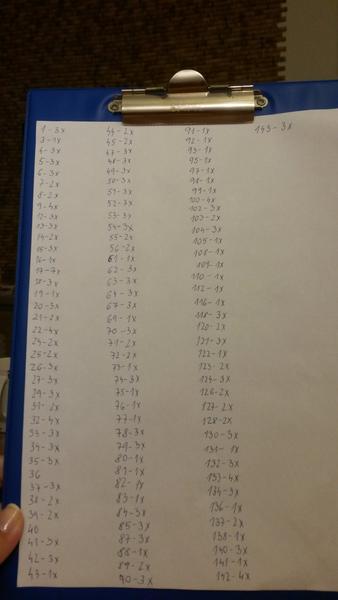 1-3x
3-1x
4-3x
5-3x
6-3x
7-2x
8-2x
9-4x
12-3x
13-3x
14-2x
15-3x
16-1x
17-7x
18-3x
19-1x
20-3x
21-2x
22-4x
24-2x
25-2x
26-3x
27-3x
29-3x
31-2x
32-4x
33-3x
34-3x
35-3x
36
37-3x
38-2x
39-2x
40
41-3x
42-3x
43-1x
44-2x
45-2x
47-3x
48-3x
49-3x
50-3x
51-3x
52-3x
53-3x
54-3x
55-2x
56-2x
61-1x
62-3x
63-3x
64-3x
67-3x
69-1x
70-3x
71-2x
72-2x
73-1x
74-3x
75-1x
76-1x
77-1x
78-3x
79-3x
80-1x
81-1x
82-1x
83-1x
84-3x
85-3x
87-3x
88-1x
89-2x
90-3x
91-1x
92-1x
93-1x
95-1x
97-1x
98-1x
99-1x
100-4x
102-3x
103-2x
104-3x
105-1x
108-1x
109-1x
110-1x
112-1x
116-1x
118-3x
120-2x
121-3x
122-1x
123-2x
124-3x
126-2x
127-2x
128-2x
130-3x
131-1x
132-3x
133-4x
134-3x
136-1x
137-2x
138-1x
140-3x
141-1x
142-4x
143-3x